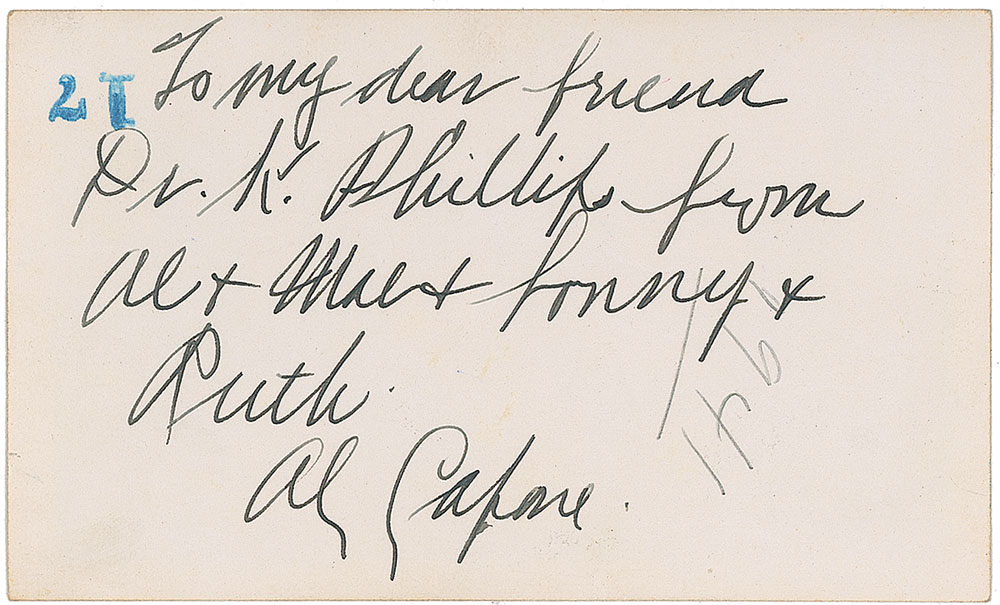 12
To my dear friend
Dr. K. Phillips from
Al + Mae + Sonny +
Ruth.
Al Capone.